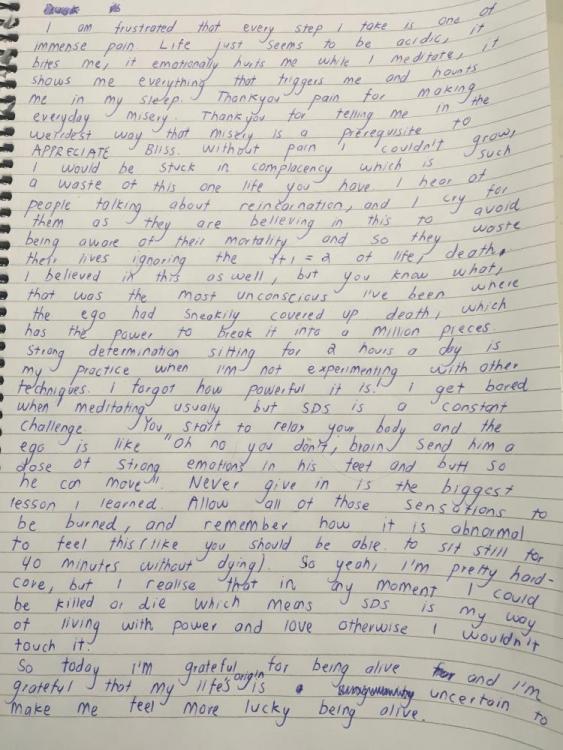 I am frustrated that every step I take is one of
immense pain Life just seems to be acidic, it
bites me, it emotionally hurts me while I meditate, it
shows me everything that triggers me and haunts
me in my sleep. Thankyou pain for making
everyday misery. Thankyou for telling me in the
weirdest way that misery is a prerequisite to
APPRECIATE Bliss. Without pain I couldn't grow,
I would be stuck in complacency which is such
a waste of this one life you have. I hear of
people talking about reincarnation, and I cry for
them as they are believing in this to avoid
being aware of their mortality and so they waste
their lives ignoring the 1+1=2 of life, death.
I believed in this as well, but you know what,
that was the most unconscious I've been where
the ego had sneakily covered up death, which
has the power to break it into a million pieces.
Strong determination sitting for 2 hours a day is
my practice when I'm not experimenting with other
techniques. I forgot how powerful it is! I get bored
when meditating usually but SDS is a constant
challenge. You start to relax your body and the
ego is like "Oh no you don't, brain send him a
dose of strong emotions in his feet and butt so
he can move". Never give in is the biggest
lesson I learned. Allow all of those sensations to
be burned, and remember how it is abnormal
to feel this (like you should be able to sit still for
40 minutes without dying). So yeah, I'm pretty hard-
core, but I realise that in any moment I could
be killed or die which means SDS is my way
of living with power and love otherwise I wouldn't
touch it.
So today I'm grateful for being alive and I'm
grateful that my life's origin is uncertain to
make me feel more lucky being alive.